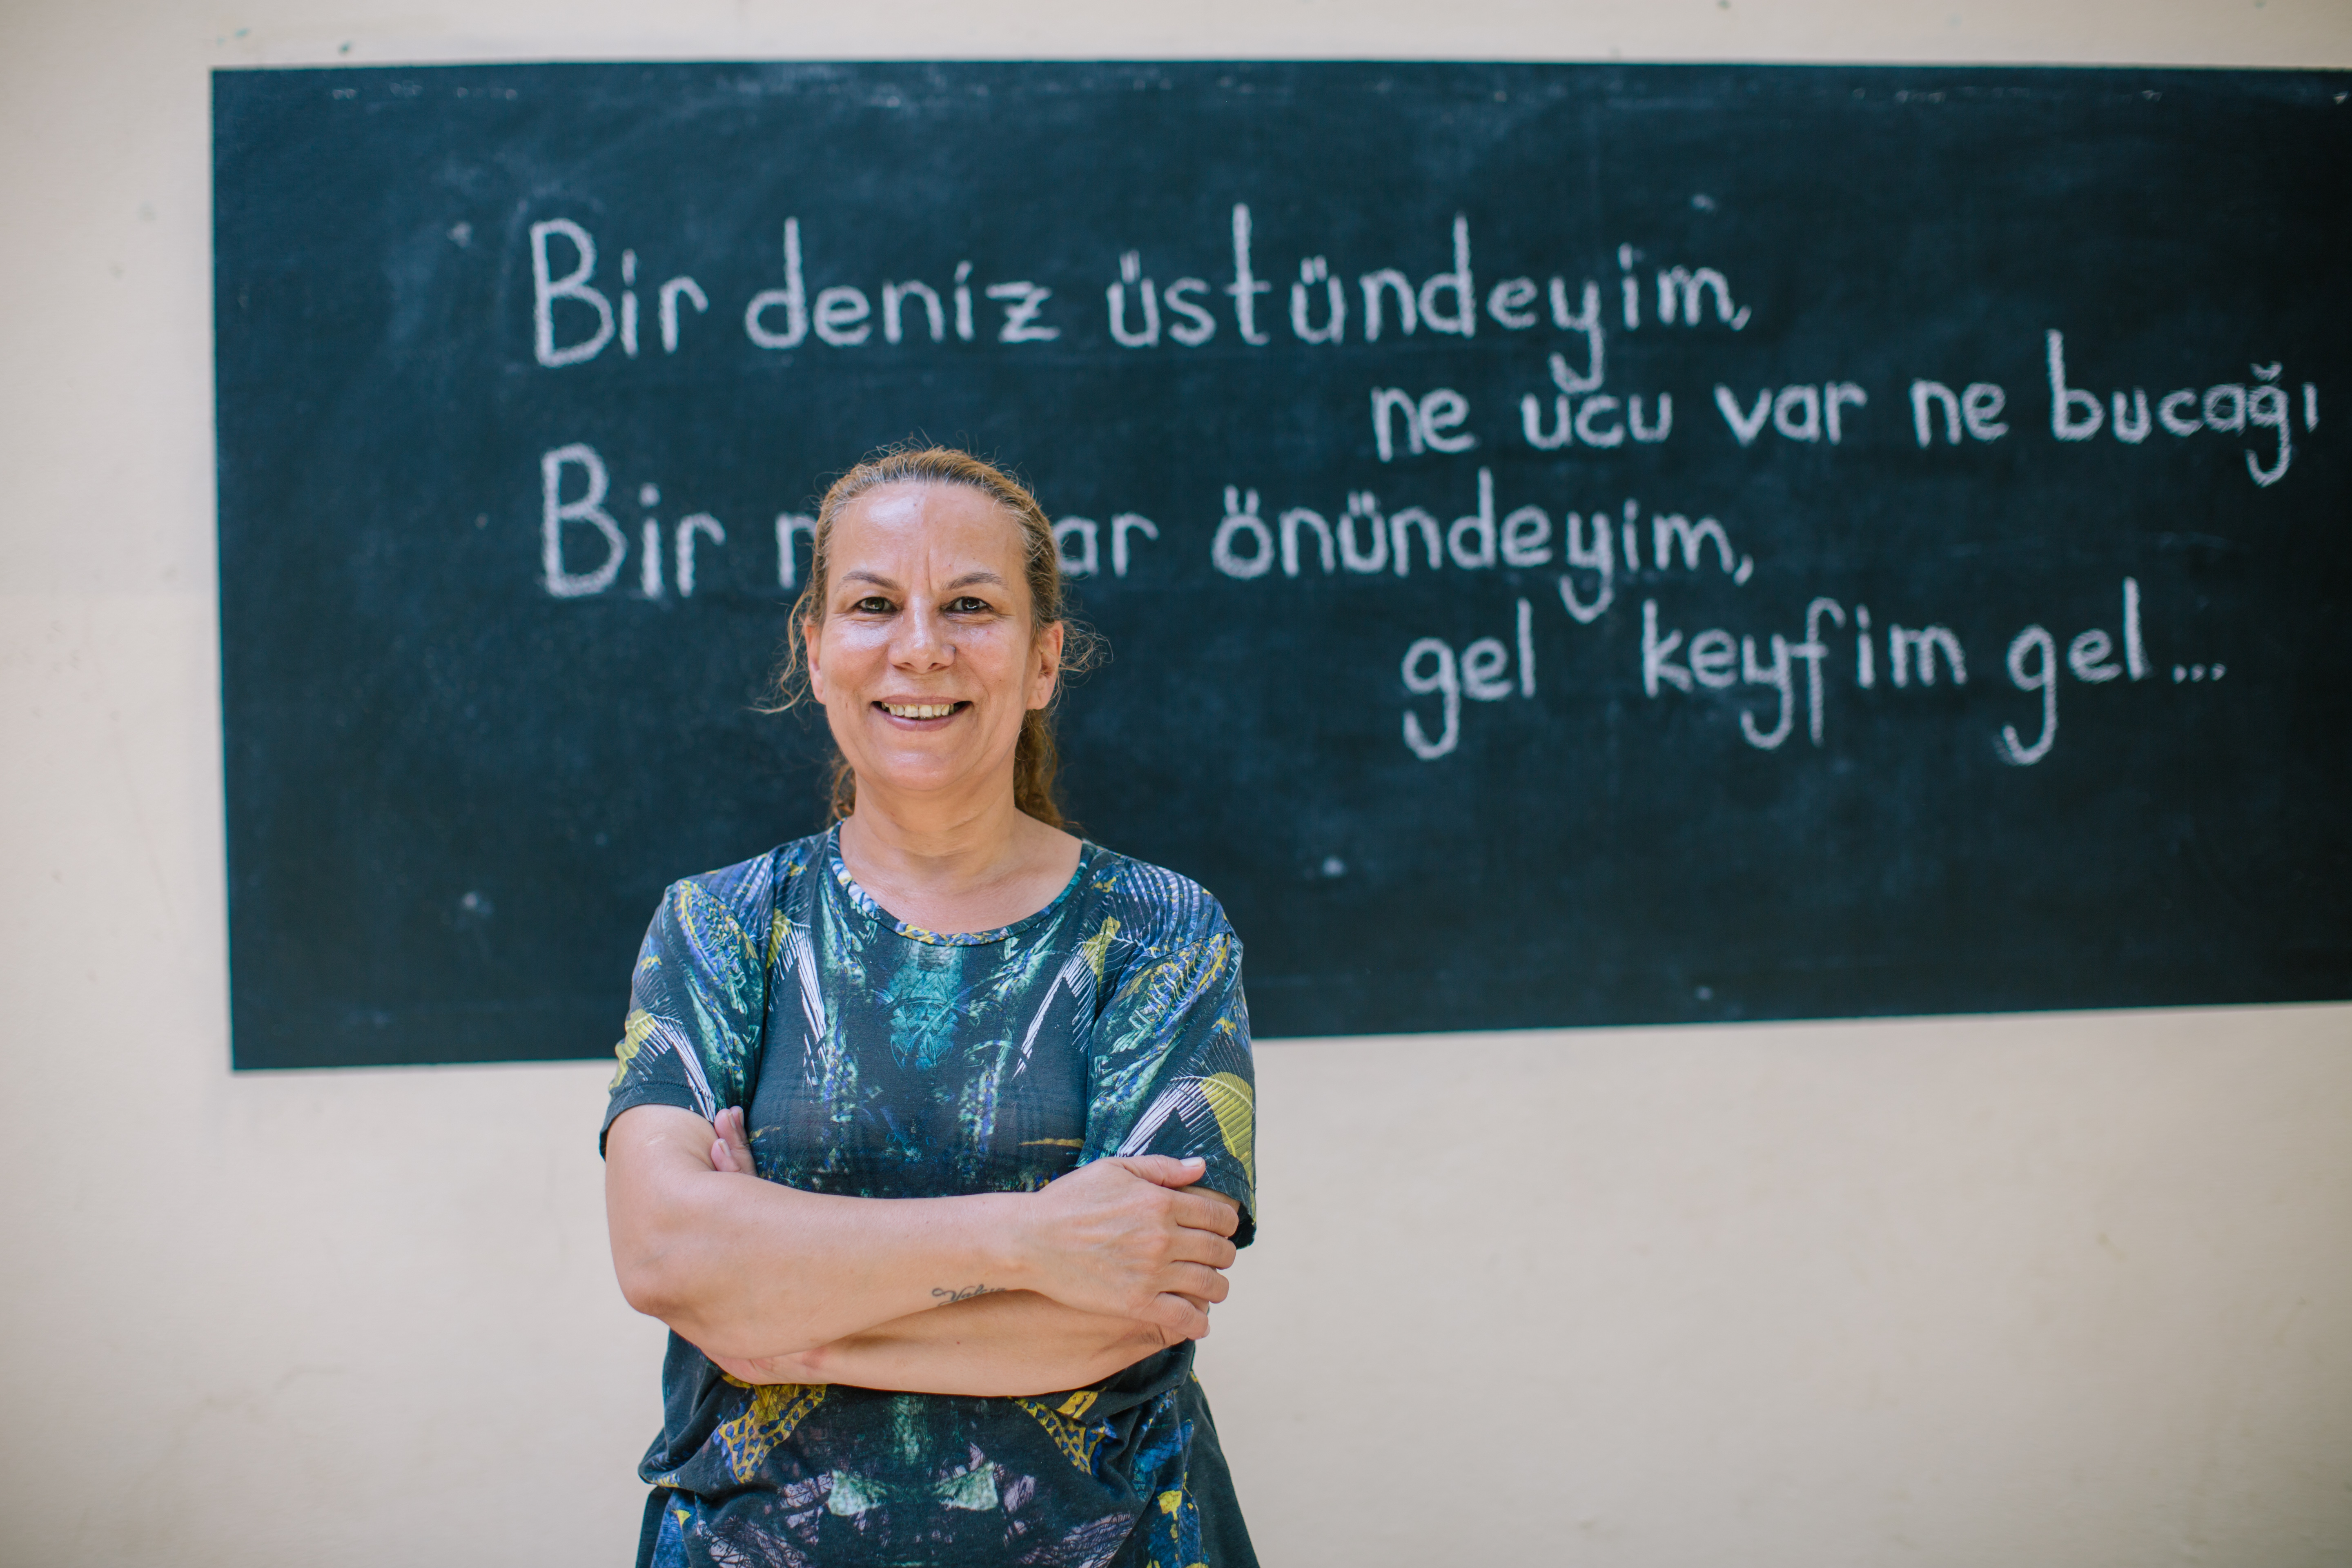 Bir deniz üstündeyim,
ne ucu var ne bucağı
Bir önündeyim,
gel keyfim gel...